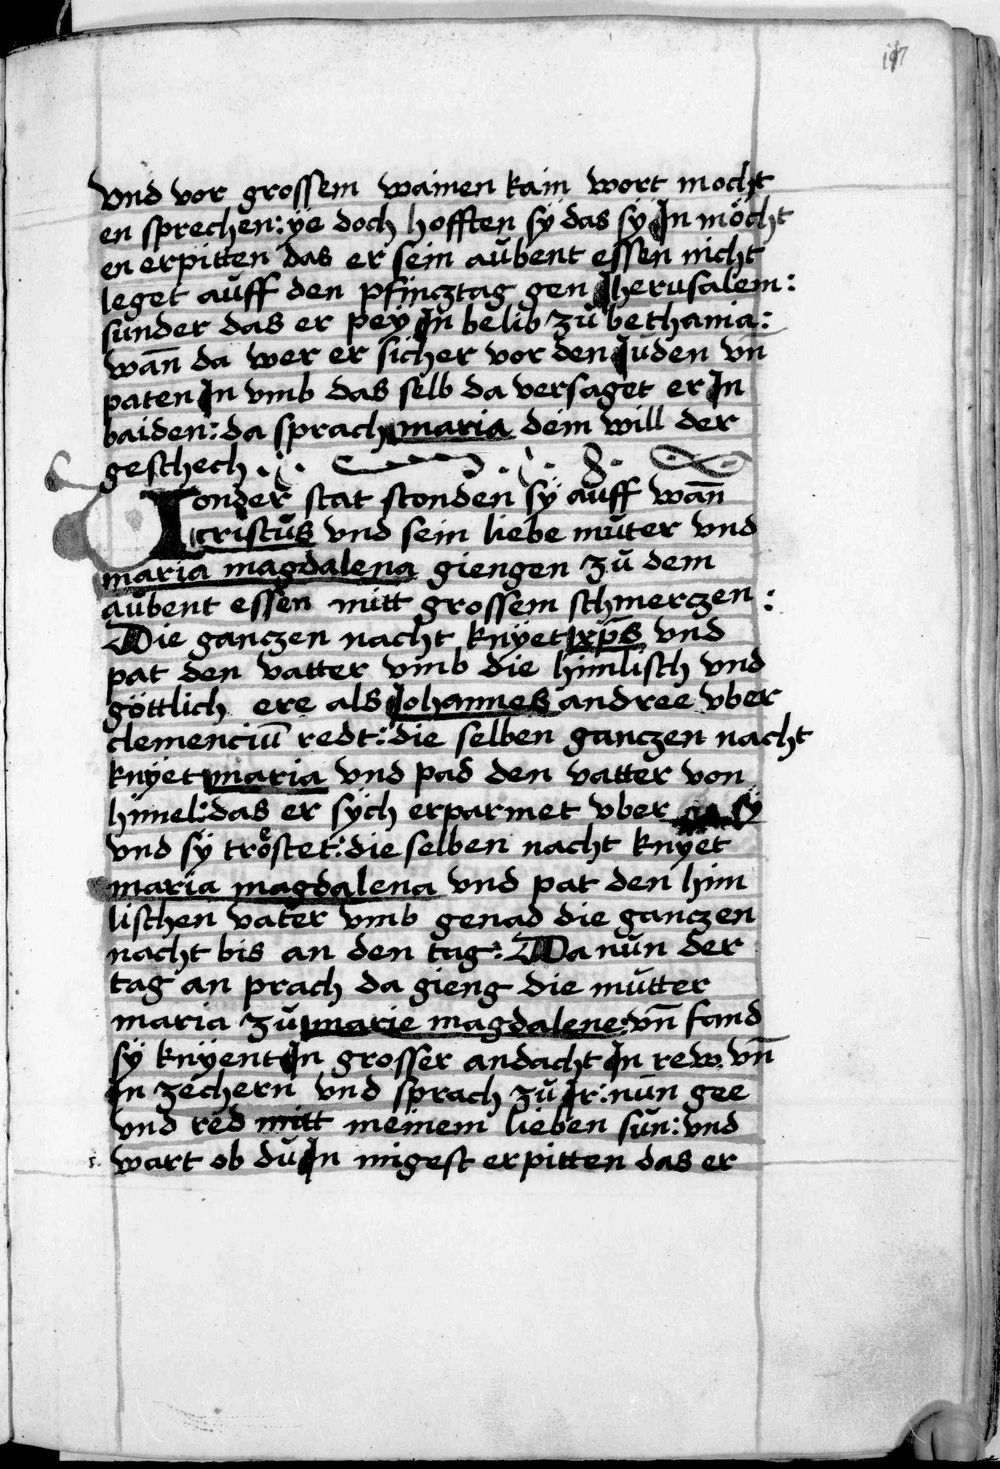 197
vnd vor grossem wainen kain wort mocht
en sprechen: ye doch hofften sÿ das sÿ In möcht
en erpitten das er sein aŭbent essen nicht
leget aŭff den pfincztag gen Iherusalem:
sunder das er peÿ In belib zŭ bethania:
wañ da wer er sicher vor den Juden vn
paten In vmb das selb da versaget er In
baiden: da sprach maria dein will der
geschech
Zonder stat stonden sÿ aŭff wañ
cristŭs vnd sein liebe mŭter vnd
maria magdalena giengen zŭ dem
aŭbent essen mitt grossem schmerczen:
Die ganczen nacht knÿet xp̄s vnd
pat den vatter vmb die himlisch vnd
göttlich ere als Johannes andree vber
clemenciū redt: die selben ganczen nacht
knÿet maria vnd pad den vatter von
himel: das er sÿch erparmet vber sÿ
vnd sÿ tröstet: die selben nacht knÿet
maria magdalena vnd pat den him
lischen vater vmb genad die ganczen
nacht bis an den tag: Da nŭn der
tag an prach da gieng die mŭtter
maria zŭ marie magdalene: vn̄ fand
sÿ knÿent In grosser andacht In rew vn̄
In zechern vnd sprach zŭ Ir: nŭn gee
vnd red mitt meinem lieben sŭn: vnd
wart ob dŭ In migest erpitten das er